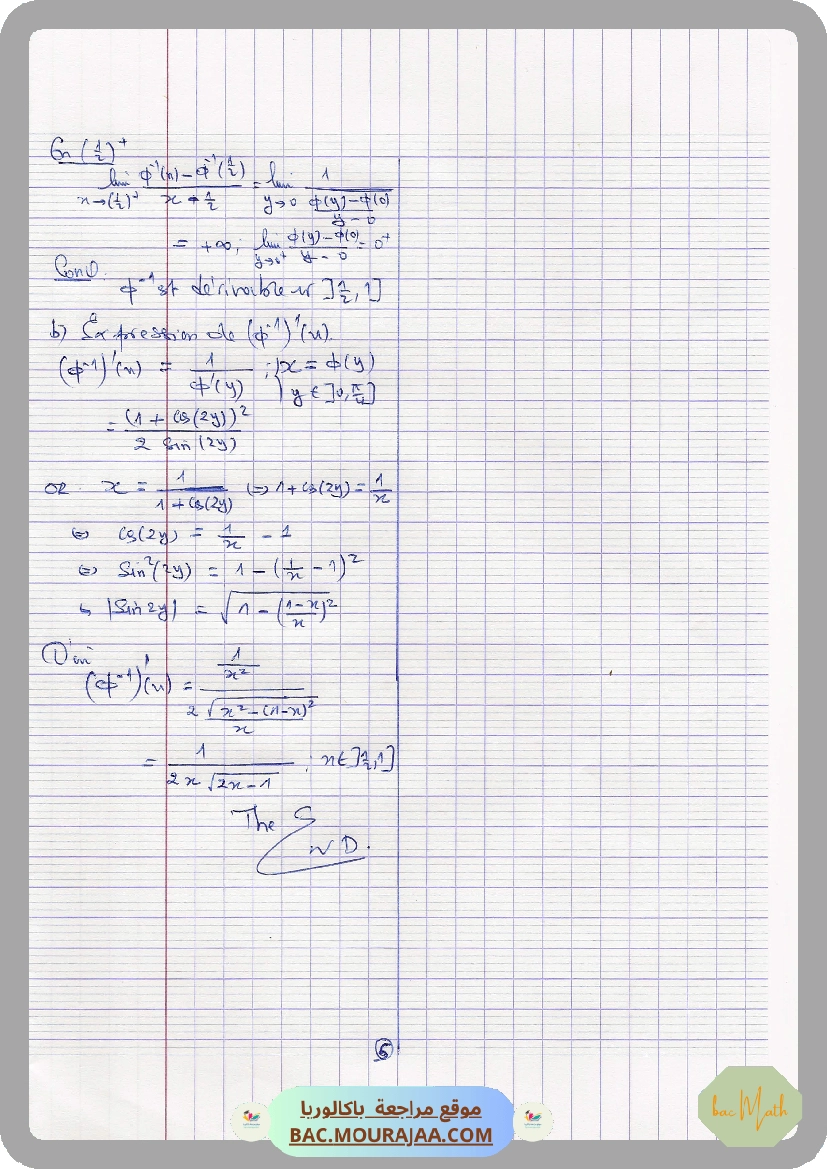 En (1/2)⁺
lim x→(1/2)⁺ (Φ⁻¹(x) − Φ⁻¹(1/2)) / (x − 1/2) = lim y→0 1 / ((Φ(y) − Φ(0)) / (y − 0))
= +∞ ; lim y→0⁺ (Φ(y) − Φ(0)) / (y − 0) = 0⁺
Concl.
Φ⁻¹ est dérivable sur ]1/2, 1]
b) Expression de (Φ⁻¹)'(x).
(Φ⁻¹)'(x) = 1 / Φ'(y) ; { x = Φ(y)
y ∈ ]0, π/4]
= (1 + cos(2y))² / (2 sin(2y))
or x = 1 / (1 + cos(2y)) ⇔ 1 + cos(2y) = 1/x
⇔ cos(2y) = 1/x − 1
⇔ sin²(2y) = 1 − (1/x − 1)²
↳ |sin 2y| = √(1 − ((1−x)/x)²)
D'où
(Φ⁻¹)'(x) = (1/x²) / (2 √(x² − (1−x)²) / x)
= 1 / (2x √(2x − 1)) ; x ∈ ]1/2, 1]
The END.
6
موقع مراجعة باكالوريا
BAC.MOURAJAA.COM
bac Math